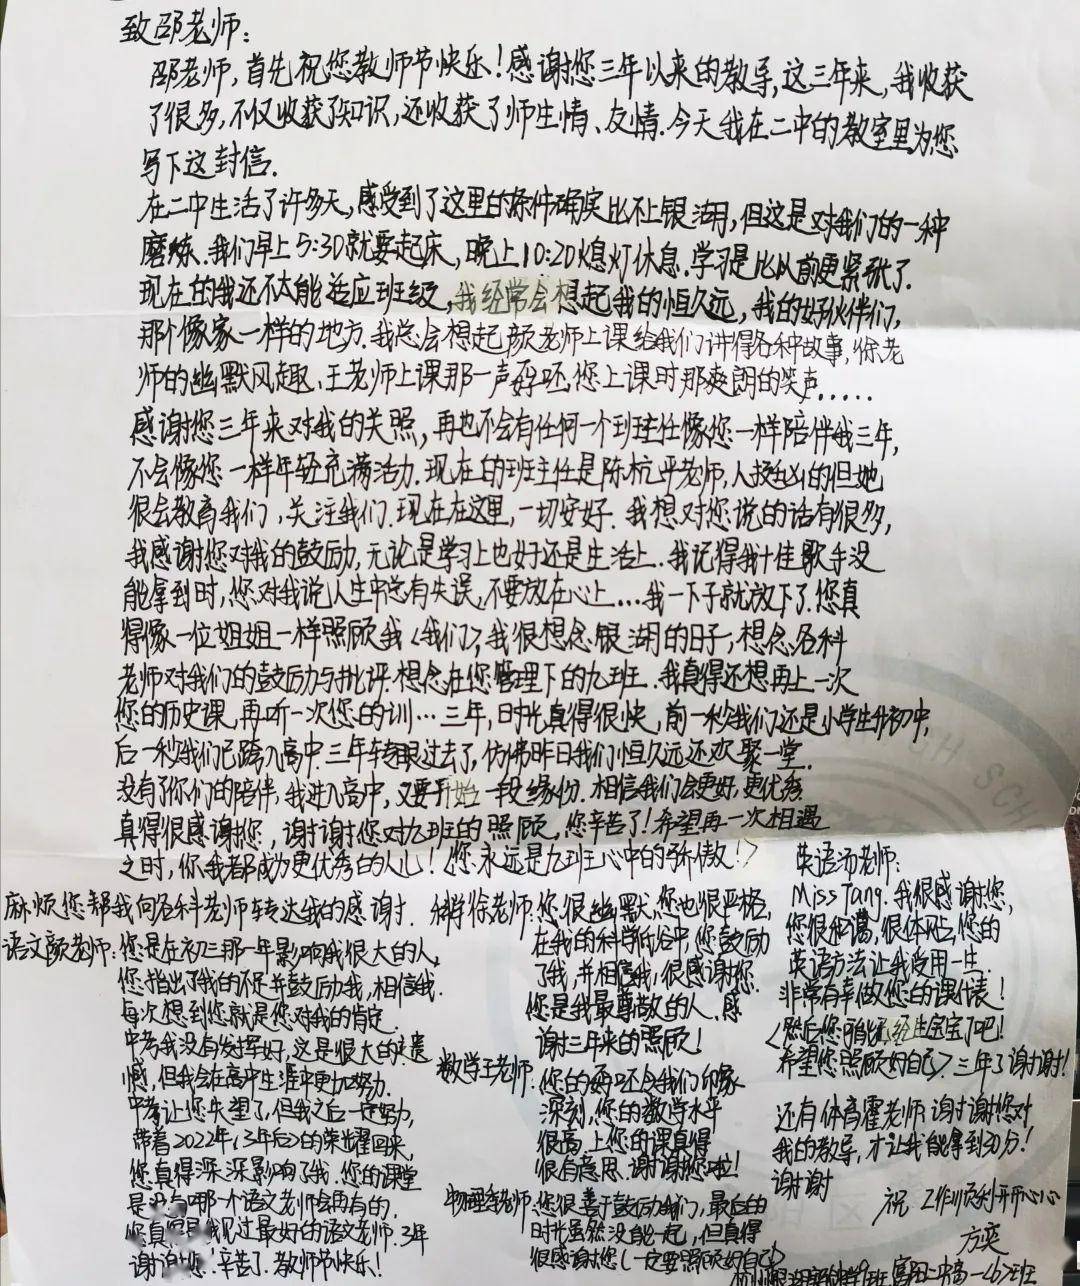 致邵老师:
邵老师,首先祝您教师节快乐!感谢您三年以来的教导,这三年来,我收获
了很多,不仅收获了知识,还收获了师生情、友情.今天我在二中的教室里为您
写下这封信.
在二中生活了许多天,感受到了这里的条件确实比不上银湖,但这是对我们的一种
磨练.我们早上5:30就要起床,晚上10:20熄灯休息.学习是比以前更紧张了.
现在的我还不太能适应班级,我经常会想起我的恒久远,我的好伙伴们,
那个像家一样的地方.我总会想起颜老师上课给我们讲得各种故事,徐老
师的幽默风趣、王老师上课那一声好呸,您上课时那爽朗的笑声.....
感谢您三年来对我的关照,再也不会有任何一个班班任像您一样陪伴我三年,
不会像您一样年轻充满活力.现在的班主任是陈杭平老师,人挺凶的但她
很会教育我们,关注我们.现在在这里,一切安好.我想对您说的话有很多,
我感谢您对我的鼓励,无论是学习上也好还是生活上.我记得我十佳歌手没
能拿到时,您对我说人生中总有失误,不要放在心上...我一下子就放下了.您真
得像一位姐姐一样照顾我<我们>,我很想念银湖的日子,想念各科
老师对我们的鼓励与批评.想念在您管理下的九班.我真得还想再上一次
您的历史课,再听一次您的训...三年,时光真得很快,前一秒我们还是小学生升初中,
后一秒我们已跨入高中.三年转眼过去了,仿佛昨日我们恒久远还欢聚一堂.
没有了你们的陪伴,我进入高中,又要开始一段缘份.相信我们会更好,更优秀
真得很感谢您,谢谢您对九班的照顾,您辛苦了!希望再一次相遇
之时,你我都成为更优秀的人儿!<您永远是九班心中的骄傲!>
麻烦您帮我向各科老师转达我的感谢.
语文颜老师:您是在初三那一年影响我很大的人,
您指出了我的不足并鼓励我,相信我.
每次想到您就是您对我的肯定.
中考我没有发挥好,这是很大的遗
憾,但我会在高中生涯中更加努力.
中考让您失望了,但我之后一定努力,
带着2022年(3年后)的荣耀回来,
您真得深深影响了我.您的课堂
是没有哪一个语文老师会再有的.
您真得是我见过最好的语文老师.3年
谢谢您!辛苦了.教师节快乐!
科学徐老师:您很幽默,您也很严格,
在我的科学低谷中,您鼓励
了我,并相信我!很感谢您.
您是我最尊敬的人.感
谢三年来的照顾!
数学王老师:您的好呸会我们印象
深刻,您的教学水平
很高,上您的课真得
很有意思.谢谢您啦!
物理李老师:您很善于鼓励我们,最后的
时光虽然没能一起,但真得
很感谢您(一定要照顾好自己)
英语汤老师:
Miss Tang.我很感谢您,
您很和蔼,很体贴,您的
英语方法让我受用一生.
非常有幸做您的课代表!
<然后您可能已经生宝宝了吧!
希望您照顾好自己>.三年了谢谢!
还有体育霍老师:谢谢您对
我的教导,才让我能拿到30分!
谢谢
祝 工作顺利开开心心
方奕
富阳二中高一(5)班